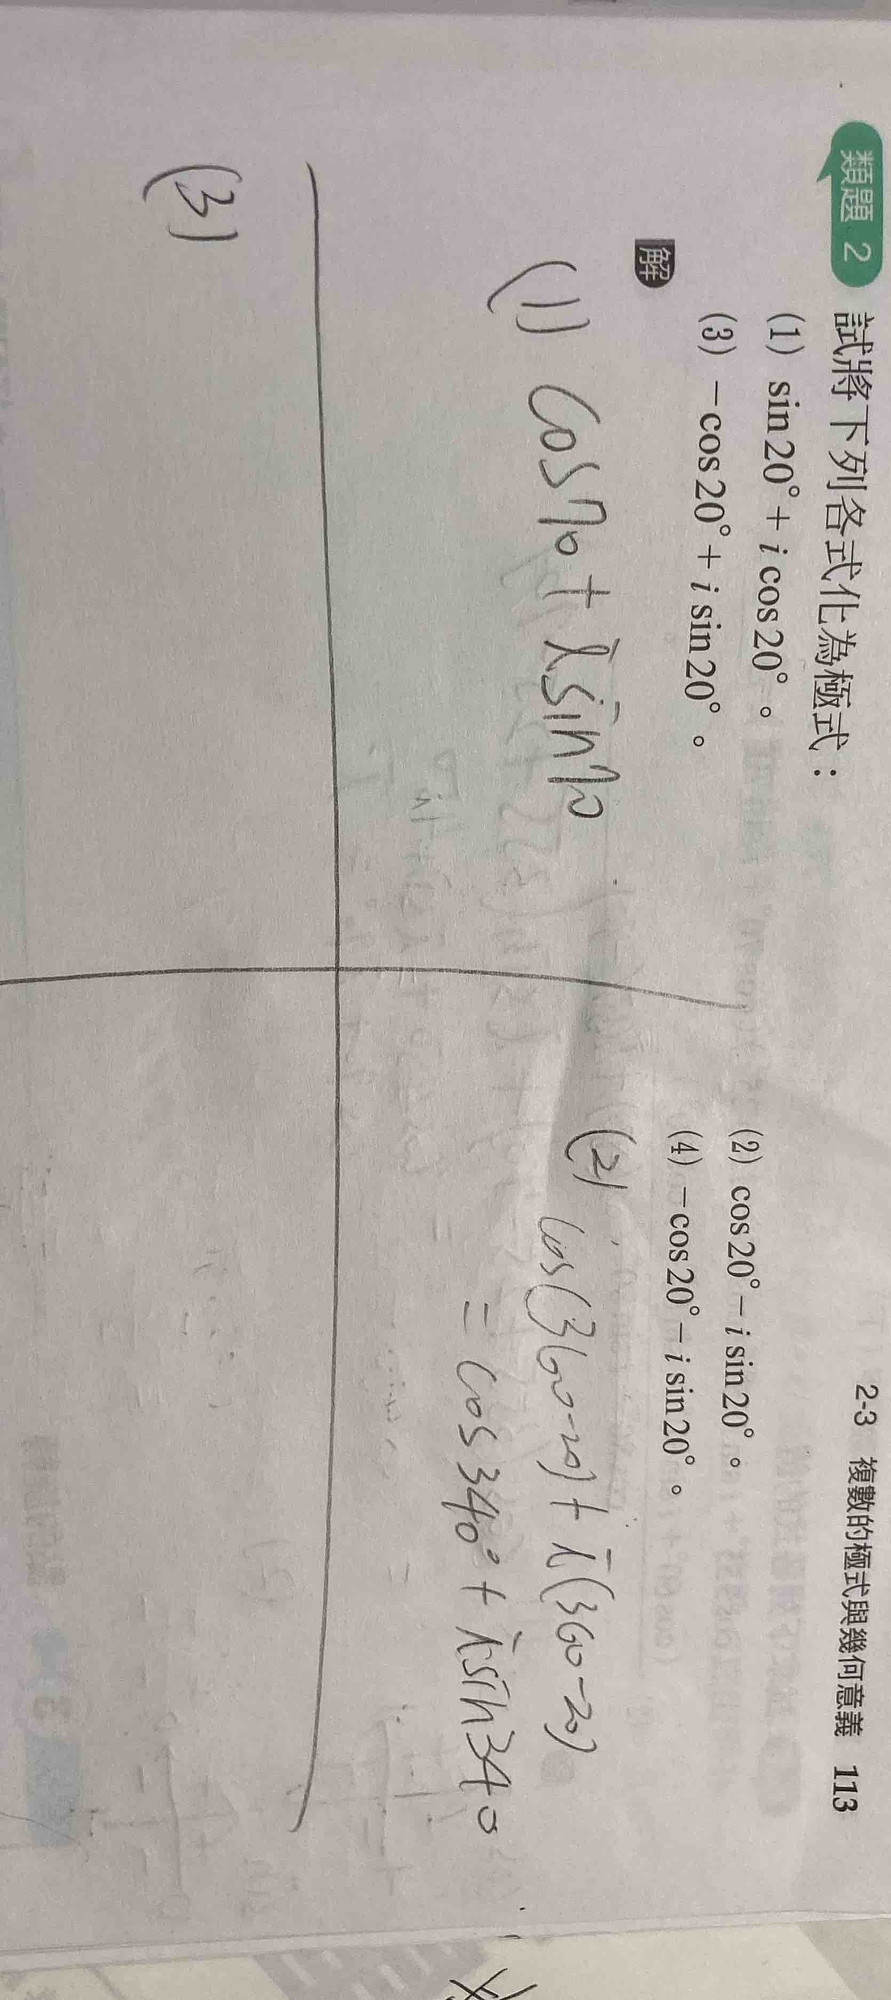 2-3 複數的極式與幾何意義 113
類題 2 試將下列各式化為極式：
(1) sin20°+i cos20°。 (2) cos20°−i sin20°。
(3) −cos20°+i sin20°。 (4) −cos20°−i sin20°。
解
(1) cos70+isin70
(2) cos(360-20)+i(360-20)
= cos340°+isin340
(3)